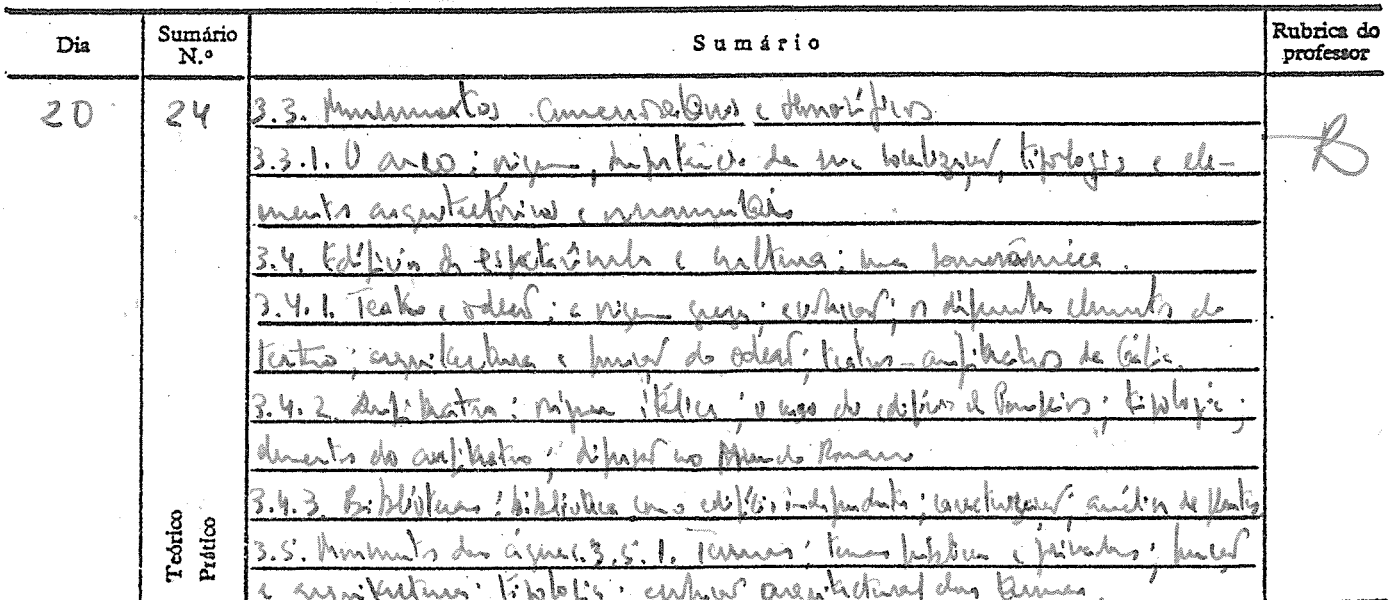 Dia Sumário N.º Sumário Rubrica do professor
20 24 3.3. Monumentos comemorativos e honoríficos
3.3.1. O arco: origem, importância da sua localização, tipologia e ele-
mentos arquitectónicos e ornamentais
3.4. Edifícios de espectáculo e cultura: uma panorâmica.
3.4.1. Teatro e odeão: a origem grega; evolução; os diferentes elementos do
teatro; arquitectura e função do odeão; teatros-anfiteatros da Gália.
3.4.2. Anfiteatro: origem itálica; o caso do edifício de Pompeios; tipologia;
elementos do anfiteatro; difusão no Mundo Romano
3.4.3. Bibliotecas: biblioteca como edifício independente; caracterização; análise de plantas
3.5. Monumentos das águas. 3.5.1. Termas: termas públicas e privadas; função
e arquitectura; tipologia; evolução arquitectural das termas.
Teórico
Prático